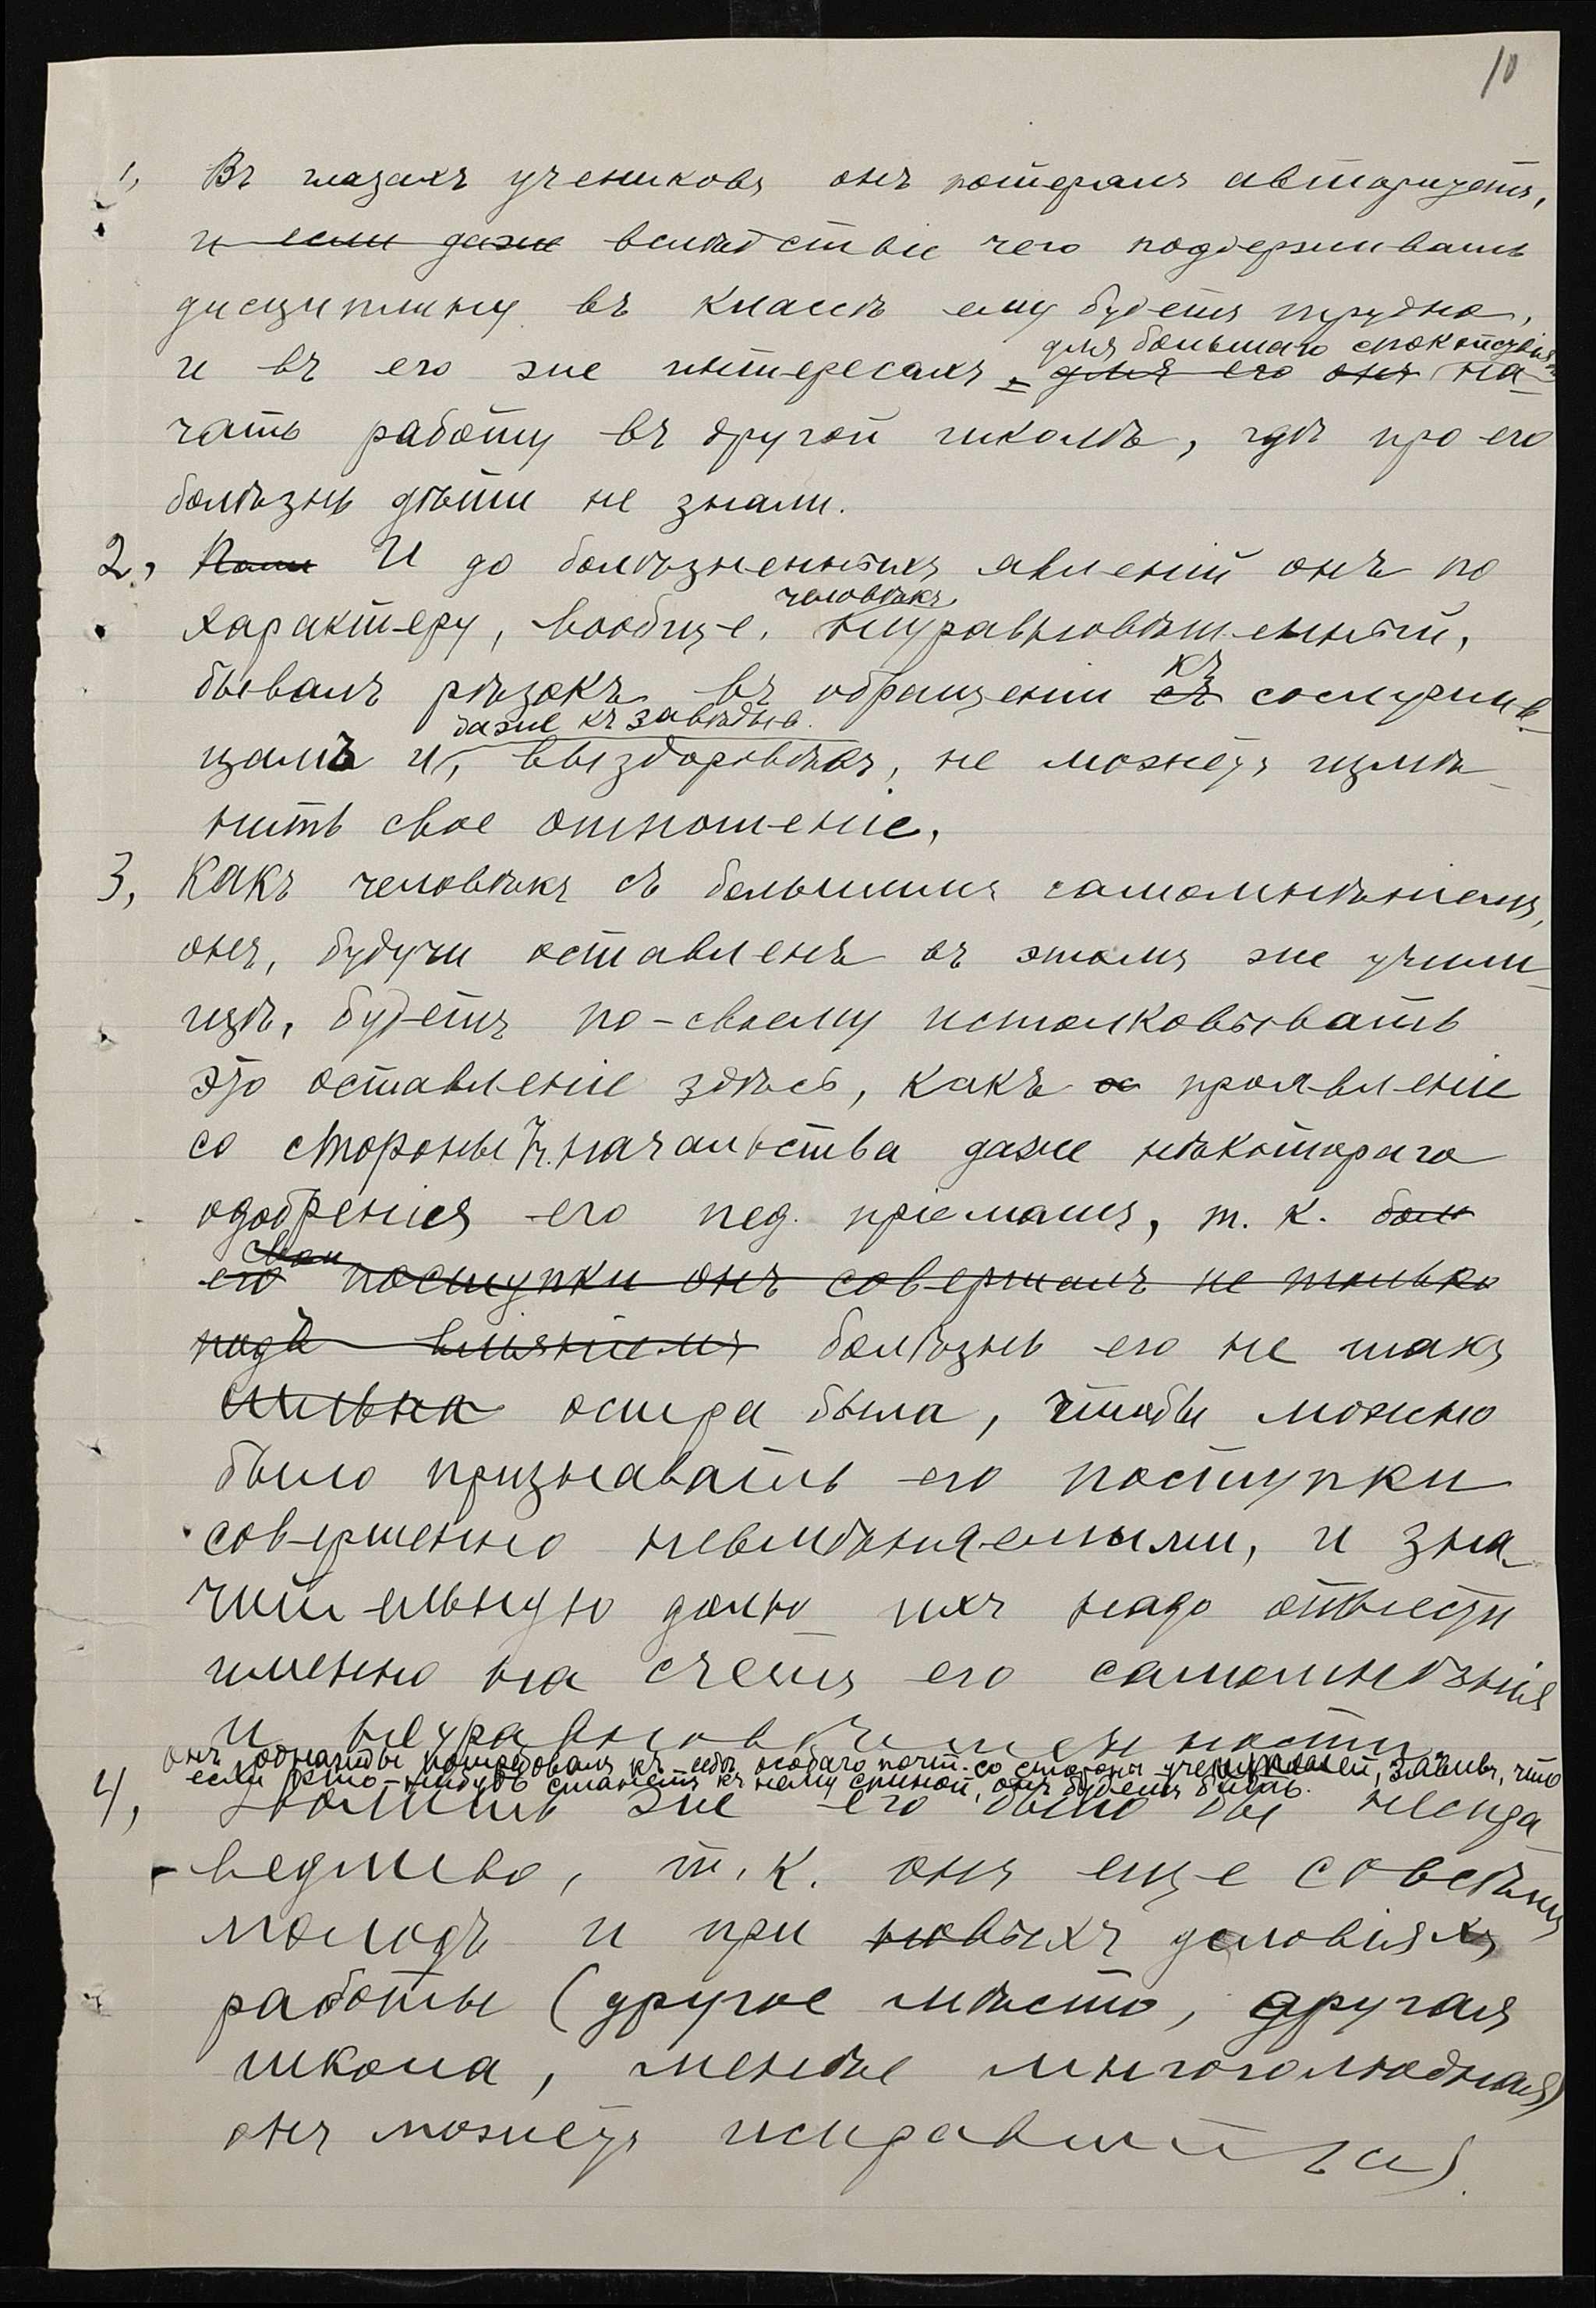 10
1, Въ глазахъ учениковъ онъ потерялъ авторитетъ,
и если даже вслѣдствіе чего поддерживать
дисциплину въ классѣ ему будетъ трудно,
для большаго спокойствія
и въ его же интересахъ = для его онъ на-
чать работу въ другой школѣ, гдѣ про его
болѣзнь дѣти не знали.
2, И до болѣзненныхъ явленій онъ по
человѣкъ
характеру, вообще, неуравновѣшенный,
къ
бывалъ рѣзокъ въ обращеніи съ сослужив-
даже къ завѣдыв.
цамъ и, выздоровѣвъ, не можетъ измѣ-
нить свое отношеніе.
3, Какъ человѣкъ съ большимъ самомнѣніемъ,
онъ, будучи оставленъ въ этомъ же учили-
щѣ, будетъ по-своему истолковывать
это оставленіе здѣсь, какъ проявленіе
со стороны начальства даже нѣкотораго
одобренія его пед. пріемамъ, т. к. бол
свои
его поступки онъ совершалъ не только
подъ вліяніемъ болѣзнь его не такъ
сильна остра была, чтобы можно
было признавать его поступки
совершенно невмѣняемыми, и зна-
чительную долю ихъ надо отнести
именно на счетъ его самомнѣнія
и неуравновѣшенности.
онъ однажды потребовалъ къ себѣ особаго почт. со стороны учителей, заявивъ, что
если кто-нибудь станетъ къ нему спиной, онъ будетъ бить.
4, Уволить же его было бы неспра-
ведливо, т. к. онъ еще совсѣмъ
молодъ и при новыхъ условіяхъ
работы (другое мѣсто, другая
школа, менѣе многолюдная)
онъ можетъ исправиться.